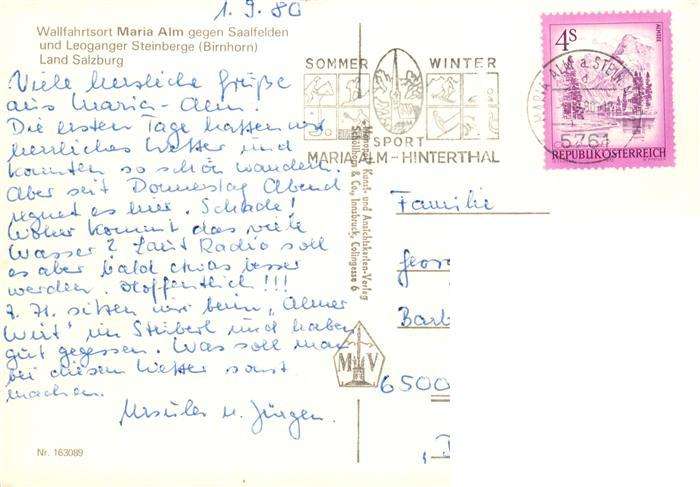 1.9.80
Wallfahrtsort Maria Alm gegen Saalfelden
und Leoganger Steinberge (Birnhorn)
Land Salzburg
Viele herzliche Grüße
aus Maria-Alm.
Die ersten Tage hatten wir
herrliches Wetter und
konnten so schön wandern.
Aber seit Donnerstag Abend
regnet es hier. Schade!
Woher kommt das viele
Wasser? Laut Radio soll
es aber bald etwas besser
werden. Hoffentlich!!!
Z. Zt. sitzen wir beim "Almer
Wirt" im Stüberl und haben
gut gegessen. Was soll man
bei diesem Wetter sonst
machen.
Ursula u. Jürgen.
Nr. 163089
SOMMER WINTER
SPORT
MARIA ALM-HINTERTHAL
MARIA ALM a. STEIN.
5761
4S
ALMSEE
REPUBLIK ÖSTERREICH
Kunst- und Ansichtskarten-Verlag
Schöllhorn & Co., Innsbruck, Colingasse 6
M V
Familie
Georg
Barb
6500